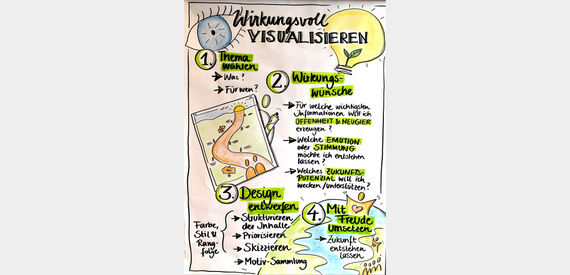 Wirkungsvoll
VISUALISIEREN
1. Thema
wählen
→ Was?
→ Für wen?
2. Wirkungs-
wünsche
→ Für welche wichtigsten
Informationen will ich
OFFENHEIT & NEUGIER
erzeugen?
→ Welche EMOTION
oder STIMMUNG
möchte ich entstehen
lassen?
→ Welches ZUKUNFTS-
POTENZIAL will ich
wecken/unterstützen?
3. Design
entwerfen
Farbe,
Stil &
Rang-
folge
→ Strukturieren
der Inhalte
→ Priorisieren
→ Skizzieren
→ Motiv-Sammlung
4. Mit
Freude
Umsetzen
→ Zukunft
entstehen
lassen